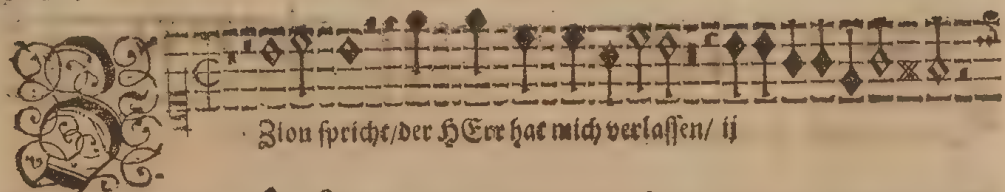 Zion spricht/der HErr hat mich verlassen/ ij